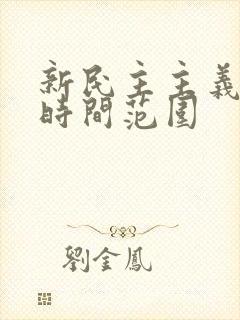 新民主主義
時間范圍
劉金鳳